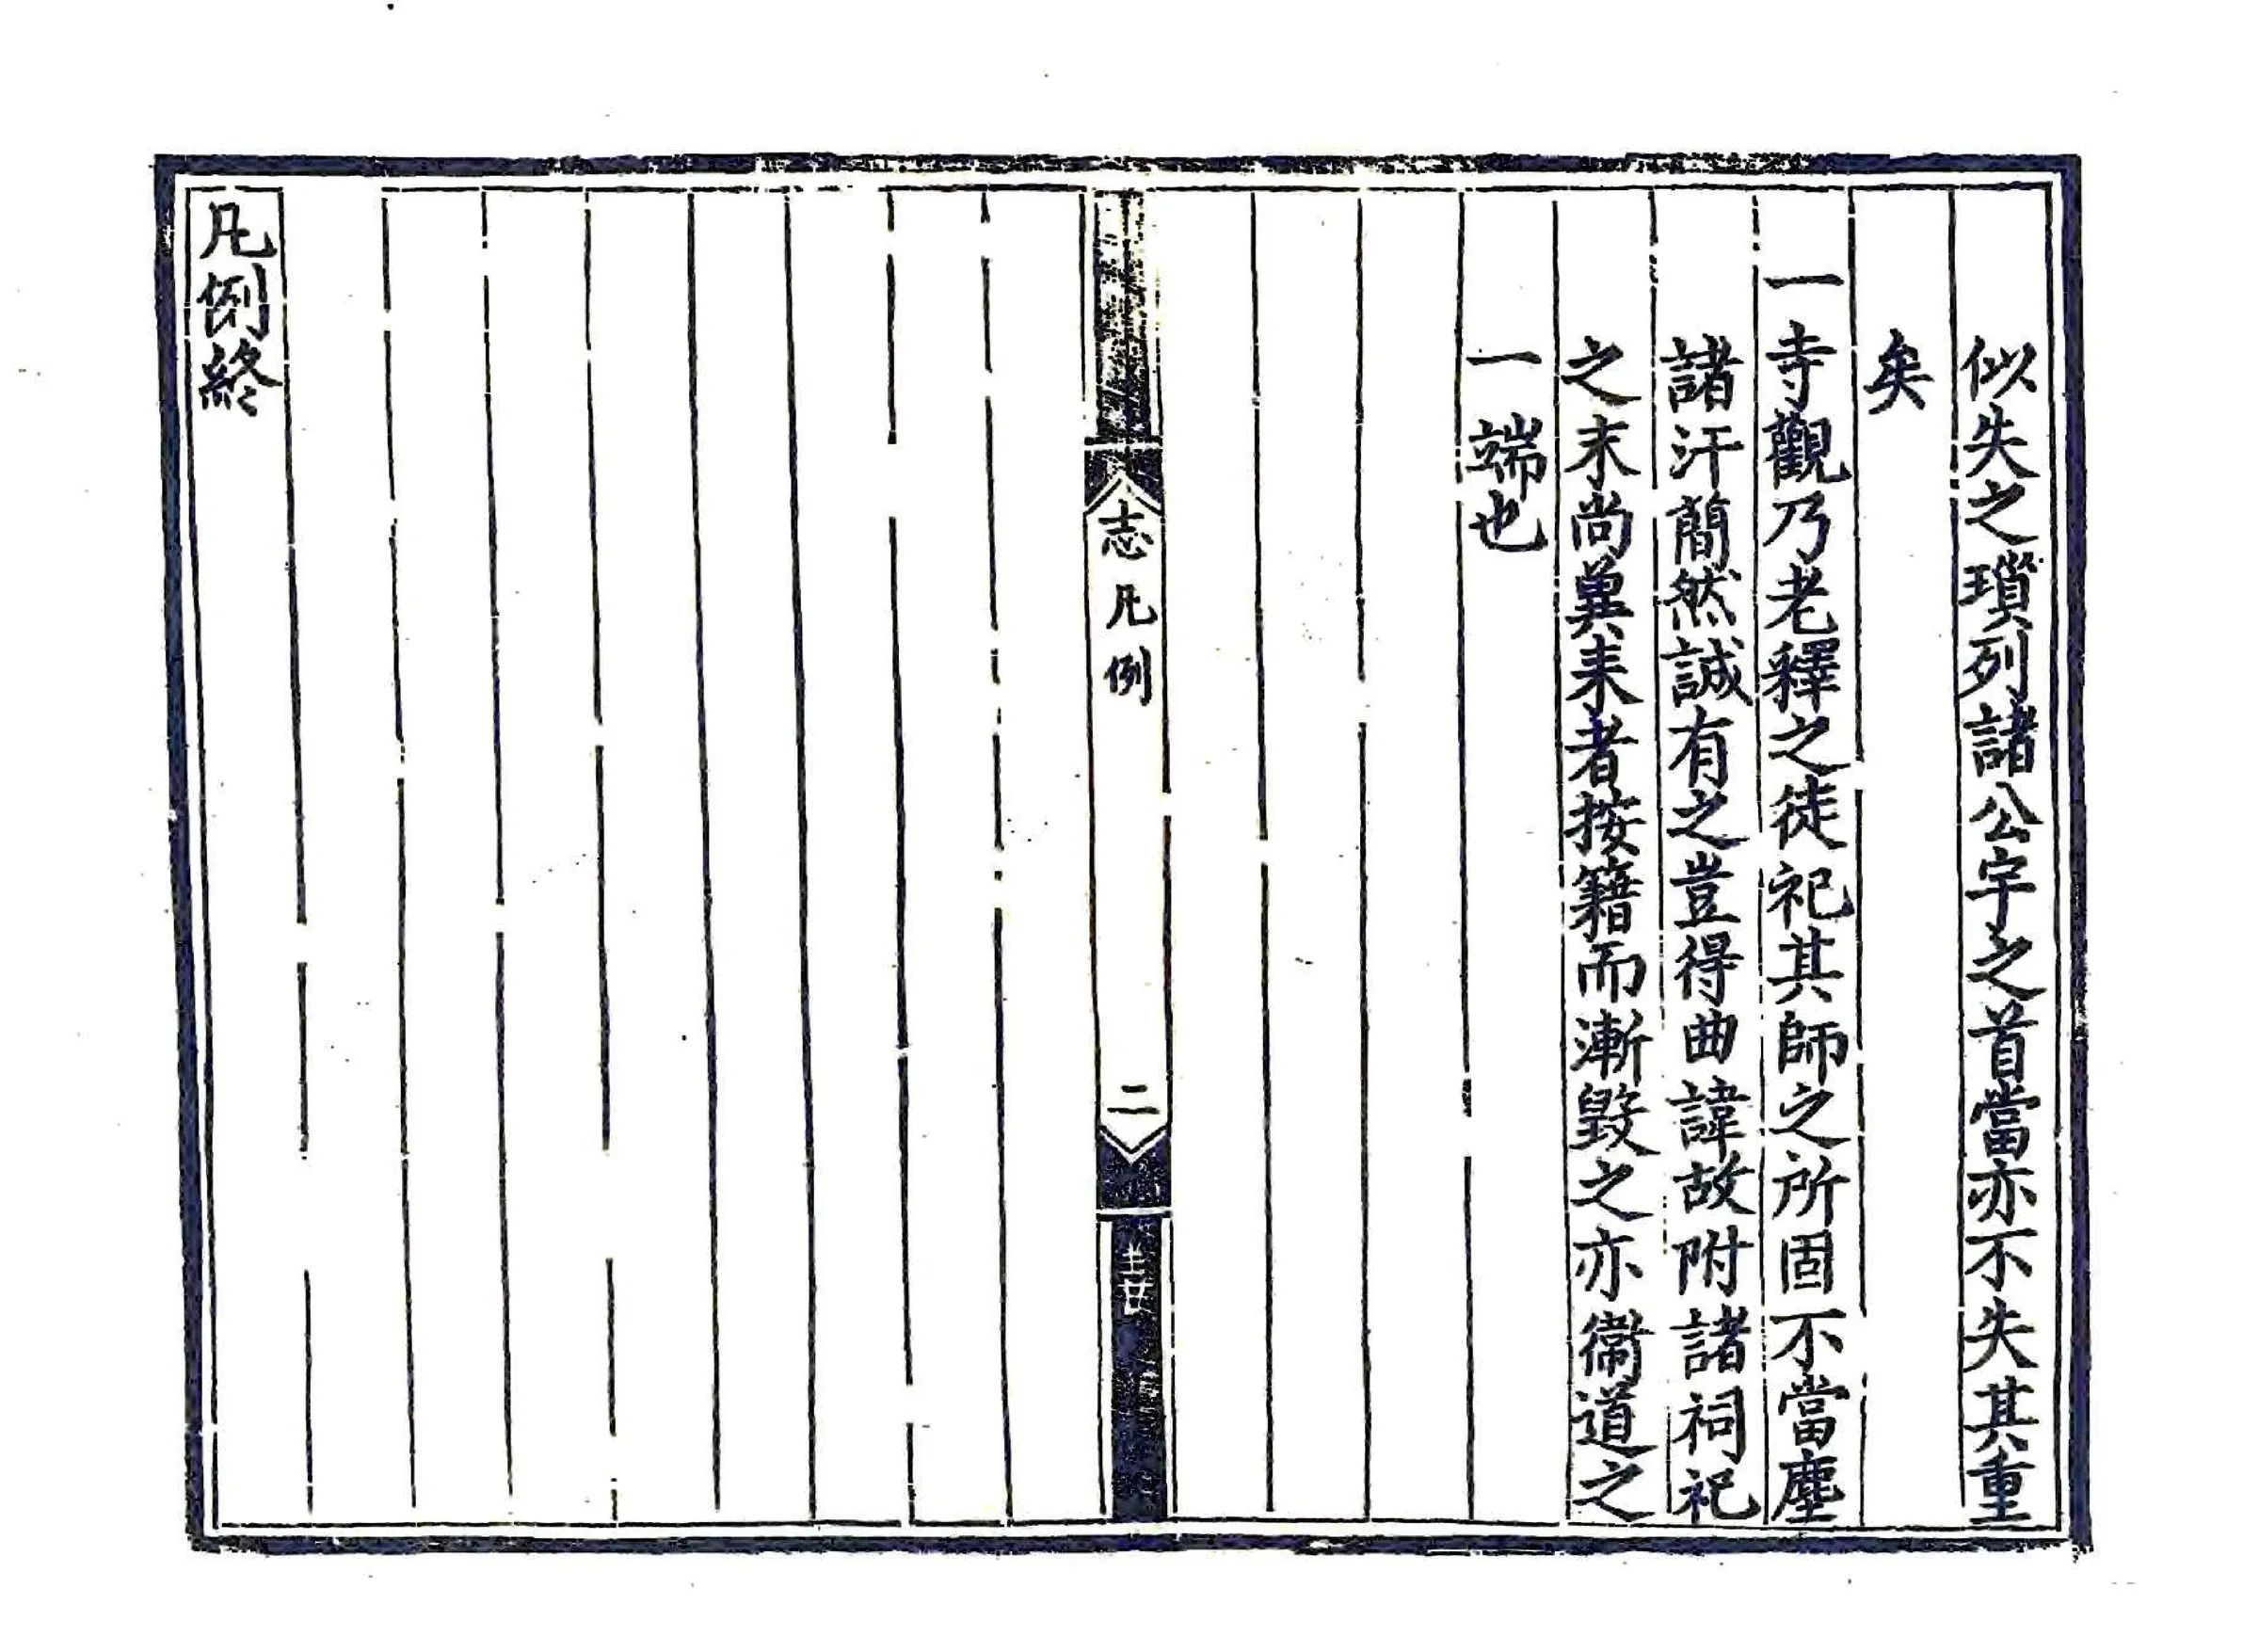 似失之瑣列諸公宇之首當亦不失其重
矣
一寺觀乃老釋之徒祀其師之所固不當塵
諸汗簡然誠有之豈得曲諱故附諸祠祀
之末尚兾耒者按籍而漸毀之亦衞道之
一端也
志凡例
二
凡例終